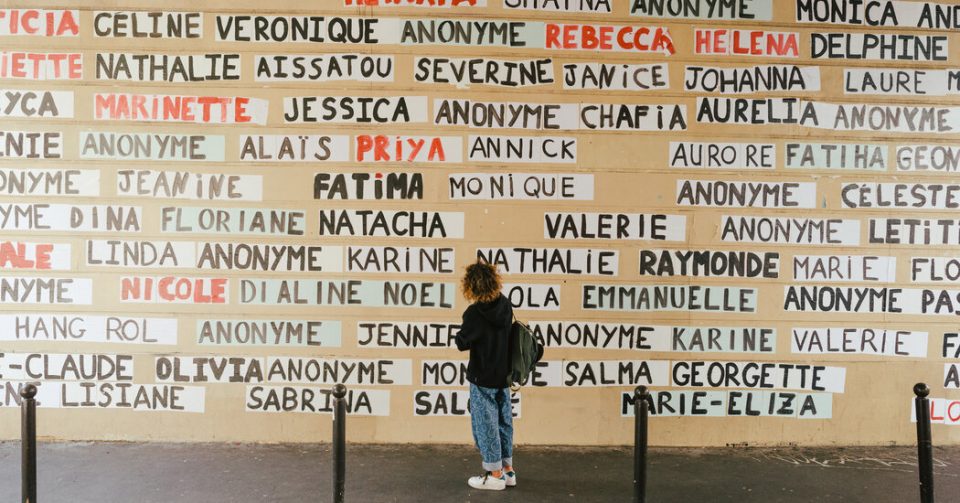 ANONYME MONICA
TICIA CÉLINE VERONIQUE ANONYME REBECCA HELENA DELPHINE
NATHALIE AISSATOU SEVERINE JANICE JOHANNA LAURE
MARINETTE JESSICA ANONYME CHAFIA AURELIA ANONYME
ANONYME ALAÏS PRIYA ANNICK AURORE FATIHA
JEANINE FATIMA MONIQUE ANONYME CÉLESTE
DINA FLORIANE NATACHA VALERIE ANONYME
LINDA ANONYME KARINE NATHALIE RAYMONDE MARIE
NICOLE DIALINE NOEL EMMANUELLE ANONYME
HANG ROL ANONYME ANONYME KARINE VALERIE
E-CLAUDE OLIVIA ANONYME SALMA GEORGETTE
LISIANE SABRINA MARIE-ELIZA